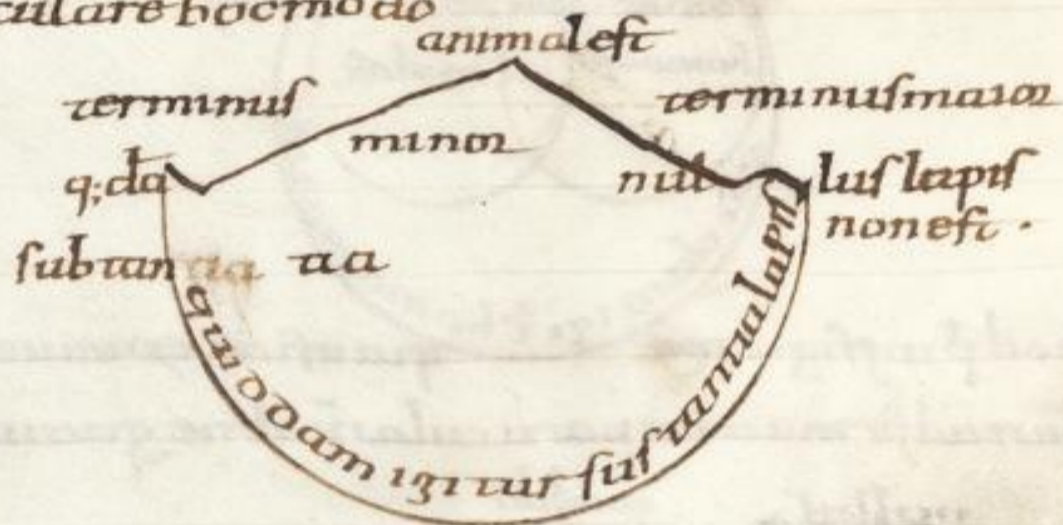 culare hoc modo
animal est
terminus
terminus maior
minor
q;da
nul
lus lapis
non est.
substan tia
quoddam igitur sustantia lapis